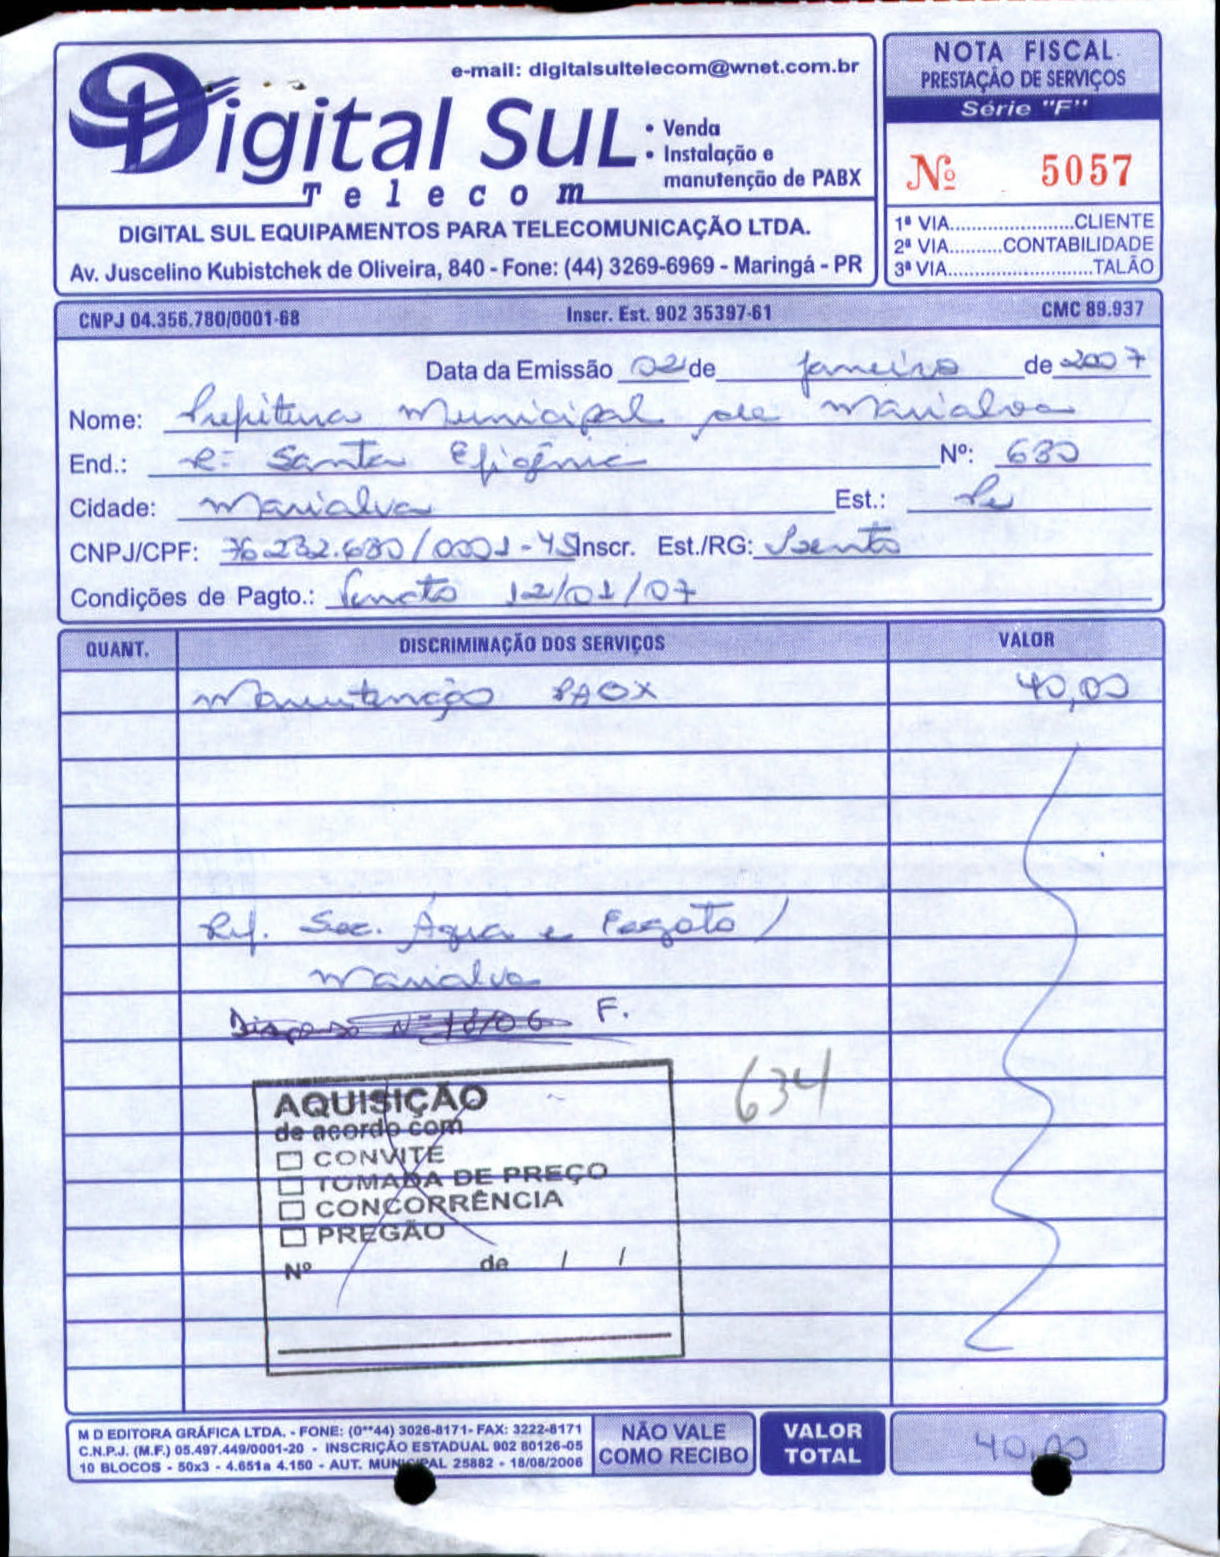 e-mail: digitalsultelecom@wnet.com.br
Digital Sul
Telecom
• Venda
• Instalação e
manutenção de PABX
DIGITAL SUL EQUIPAMENTOS PARA TELECOMUNICAÇÃO LTDA.
Av. Juscelino Kubistchek de Oliveira, 840 - Fone: (44) 3269-6969 - Maringá - PR
NOTA FISCAL
PRESTAÇÃO DE SERVIÇOS
Série "F"
Nº 5057
1ª VIA........................CLIENTE
2ª VIA..........CONTABILIDADE
3ª VIA............................TALÃO
CNPJ 04.356.780/0001-68 Inscr. Est. 902 35397-61 CMC 89.937
Data da Emissão 02 de janeiro de 2007
Nome: Prefitura Municipal de Marialva
End.: R: Santa Efigênia Nº: 680
Cidade: Marialva Est.: Pr
CNPJ/CPF: 76.282.680/0001-45 Inscr. Est./RG: Isento
Condições de Pagto.: 12/01/07
QUANT. DISCRIMINAÇÃO DOS SERVIÇOS VALOR
Manutenção PABX 40,00
Ref. Sec. Água e Esgoto /
Marialva
Dispensa Nº 18/06 F.
634
AQUISIÇÃO
de acordo com
CONVITE
TOMADA DE PREÇO
CONCORRÊNCIA
PREGÃO
Nº de / /
M D EDITORA GRÁFICA LTDA. - FONE: (0**44) 3026-8171- FAX: 3222-8171
C.N.P.J. (M.F.) 05.497.449/0001-20 - INSCRIÇÃO ESTADUAL 902 80126-05
10 BLOCOS - 50x3 - 4.651a 4.150 - AUT. MUNICIPAL 25882 - 18/08/2006
NÃO VALE
COMO RECIBO
VALOR
TOTAL
40,00